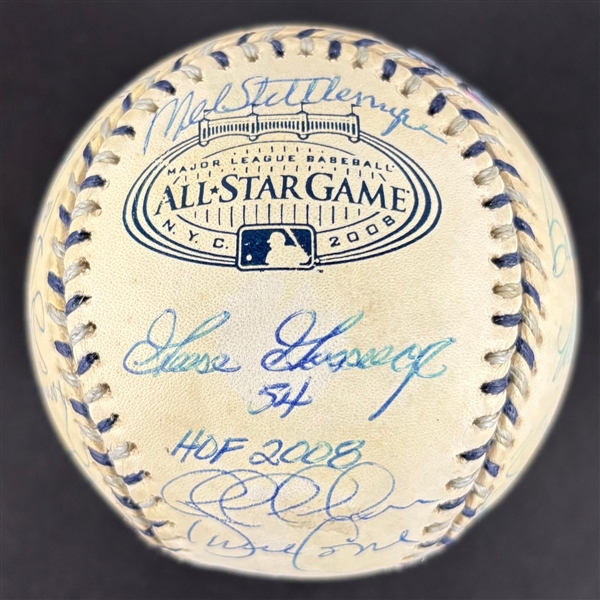 Mel Stottlemyre
MAJOR LEAGUE BASEBALL
ALL★STAR GAME
N.Y.C. 2008
Goose Gossage
54
HOF 2008